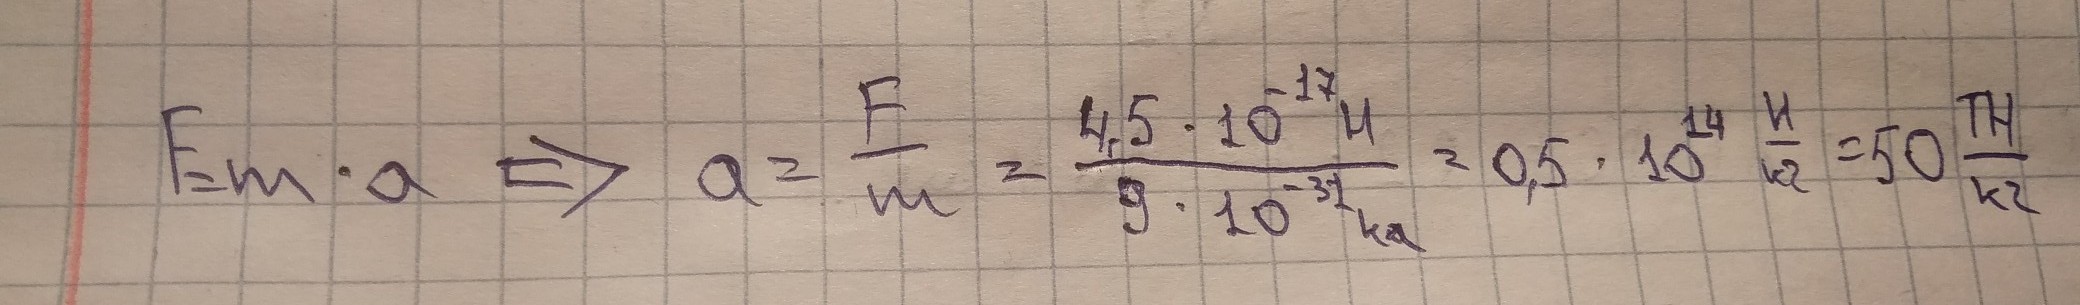 F=m·a ⇒ a = F/m = 4,5·10⁻¹⁷Н / 9·10⁻³¹кг = 0,5·10¹⁴ Н/кг = 50 ТН/кг